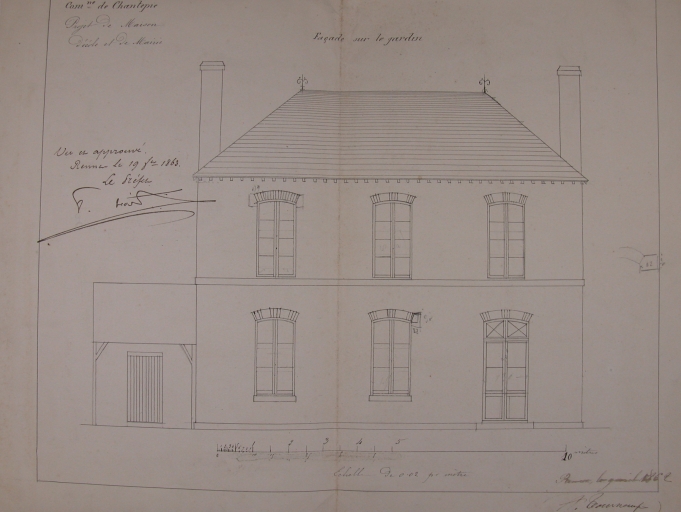 Com.ne de Chantepie
Projet de Maison
d'école et de Mairie
Façade sur le jardin
Vu et approuvé
Rennes le 19 1863
Le Préfet
1 2 3 4 5
10 mètres
Echelle De 0.02 pr mètre
Rennes